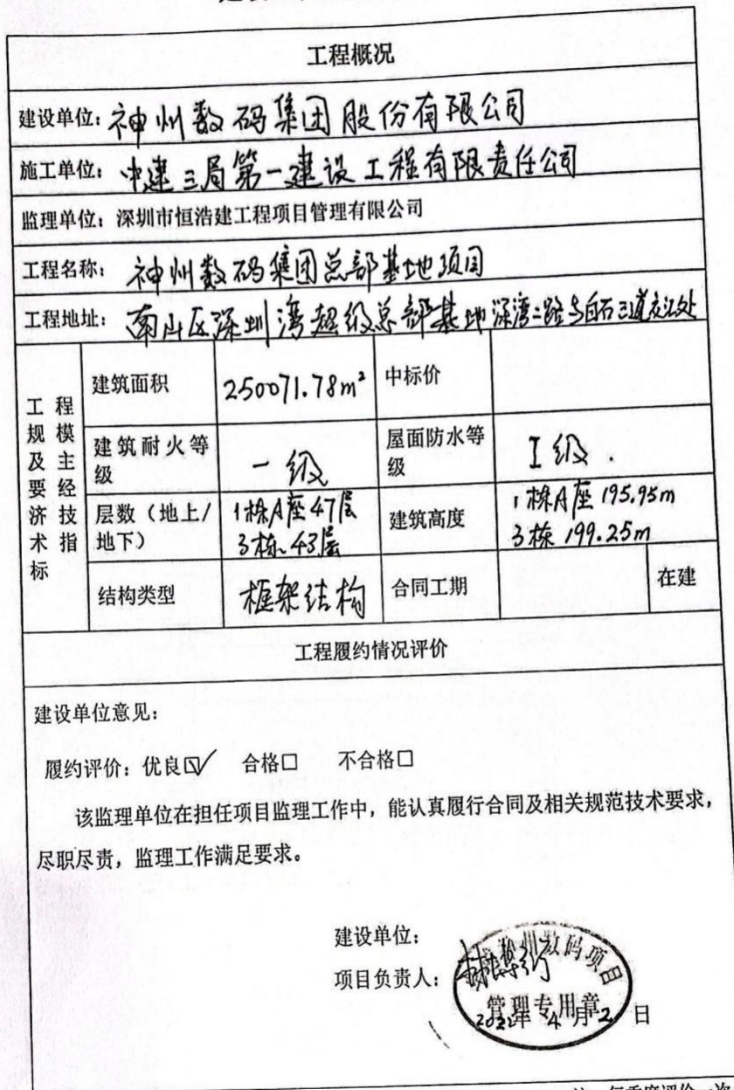 工程概况
建设单位：神州数码集团股份有限公司
施工单位：中建三局第一建设工程有限责任公司
监理单位：深圳市恒浩建工程项目管理有限公司
工程名称：神州数码集团总部基地项目
工程地址：南山区深圳湾超级总部基地深湾二路与白石三道交汇处
工程规模及主要经济技术指标
建筑面积 250071.78m² 中标价
建筑耐火等级 一级 屋面防水等级 I级.
层数（地上/地下） 1栋A座47层 3栋43层 建筑高度 1栋A座195.95m 3栋199.25m
结构类型 框架结构 合同工期 在建
工程履约情况评价
建设单位意见：
履约评价：优良☑ 合格□ 不合格□
该监理单位在担任项目监理工作中，能认真履行合同及相关规范技术要求，
尽职尽责，监理工作满足要求。
建设单位：
项目负责人：
神州数码项目
管理专用章
2022年4月2日